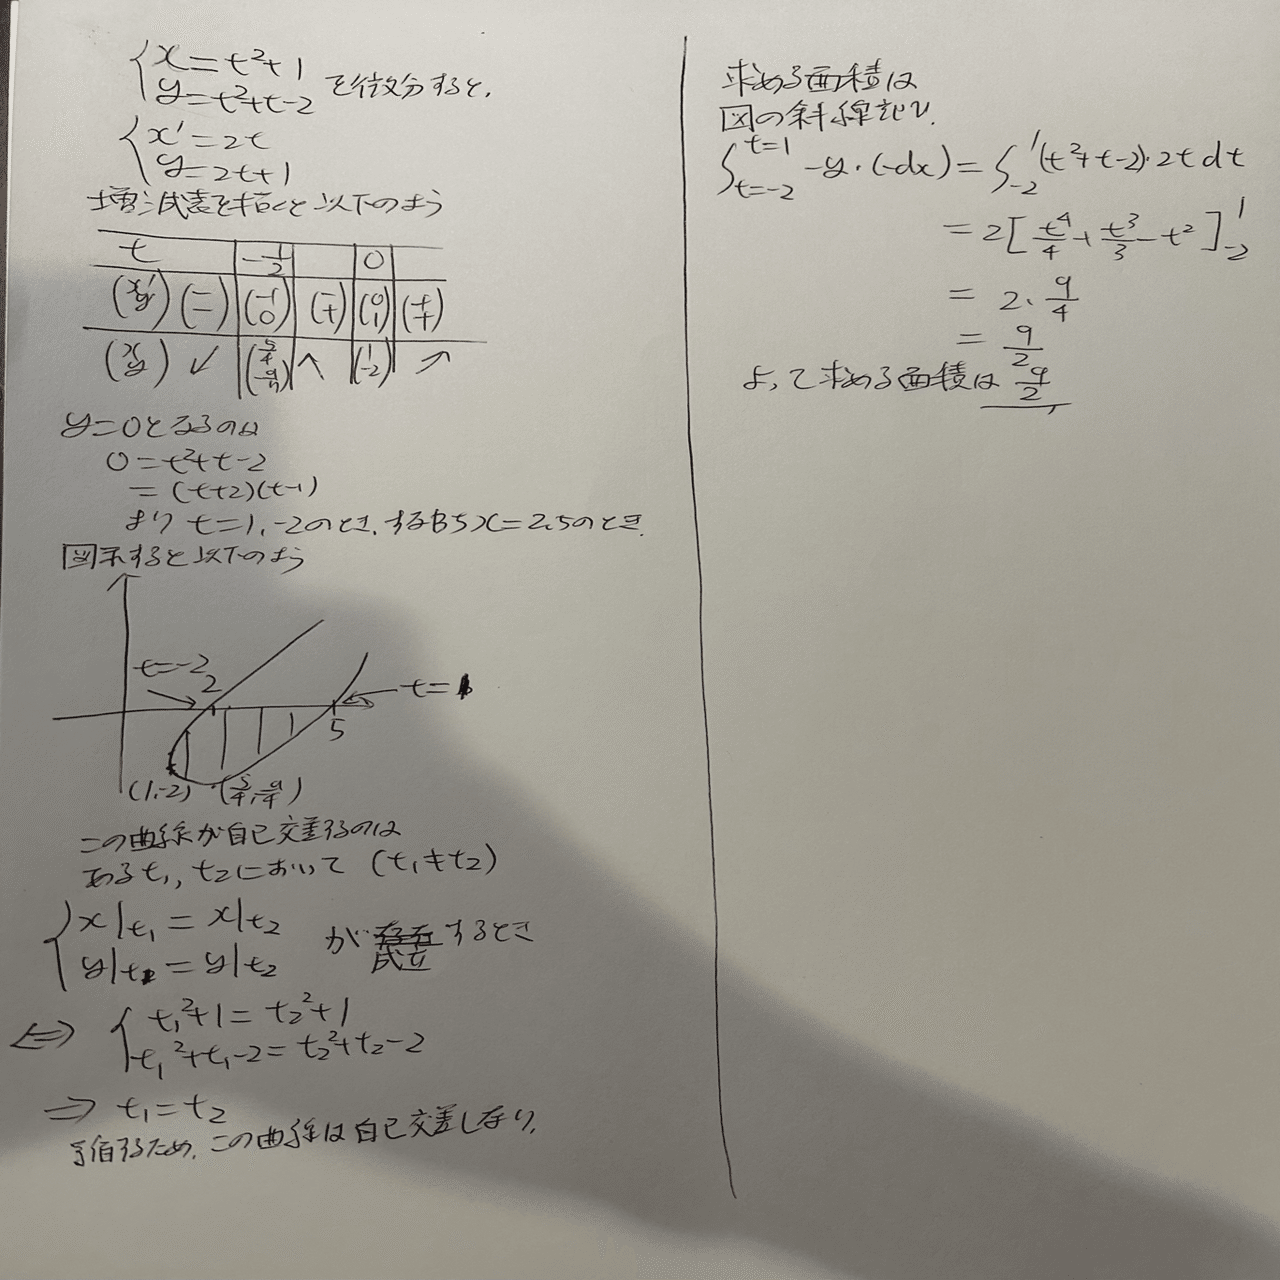 x=t²+1
y=t²+t-2 を微分すると,
x'=2t
y=2t+1
増減表を描くと以下のよう
t -1/2 0
(x' y') (- -) (-1 0) (- +) (0 1) (+ +)
(x y) ↙ (5/4 -9/4) ↖ (1 -2) ↗
y=0となるのは
0=t²+t-2
=(t+2)(t-1)
より t=1,-2のとき,すなわちx=2,5のとき
図示すると以下のよう
t=-2
2
t=1
5
(1,-2) (5/4,-9/4)
この曲線が自己交差するのは
あるt₁, t₂において (t₁≠t₂)
x|t₁ = x|t₂
y|t₁ = y|t₂ が成立するとき
⇔ t₁²+1=t₂²+1
t₁²+t₁-2=t₂²+t₂-2
⇒ t₁=t₂
矛盾するため,この曲線は自己交差しない,
求める面積は
図の斜線部で,
∫_{t=-2}^{t=1} -y・(-dx)=∫_{-2}^{1}(t²+t-2)・2t dt
=2[t⁴/4+t³/3-t²]_{-2}^{1}
= 2・9/4
= 9/2
よって求める面積は 9/2